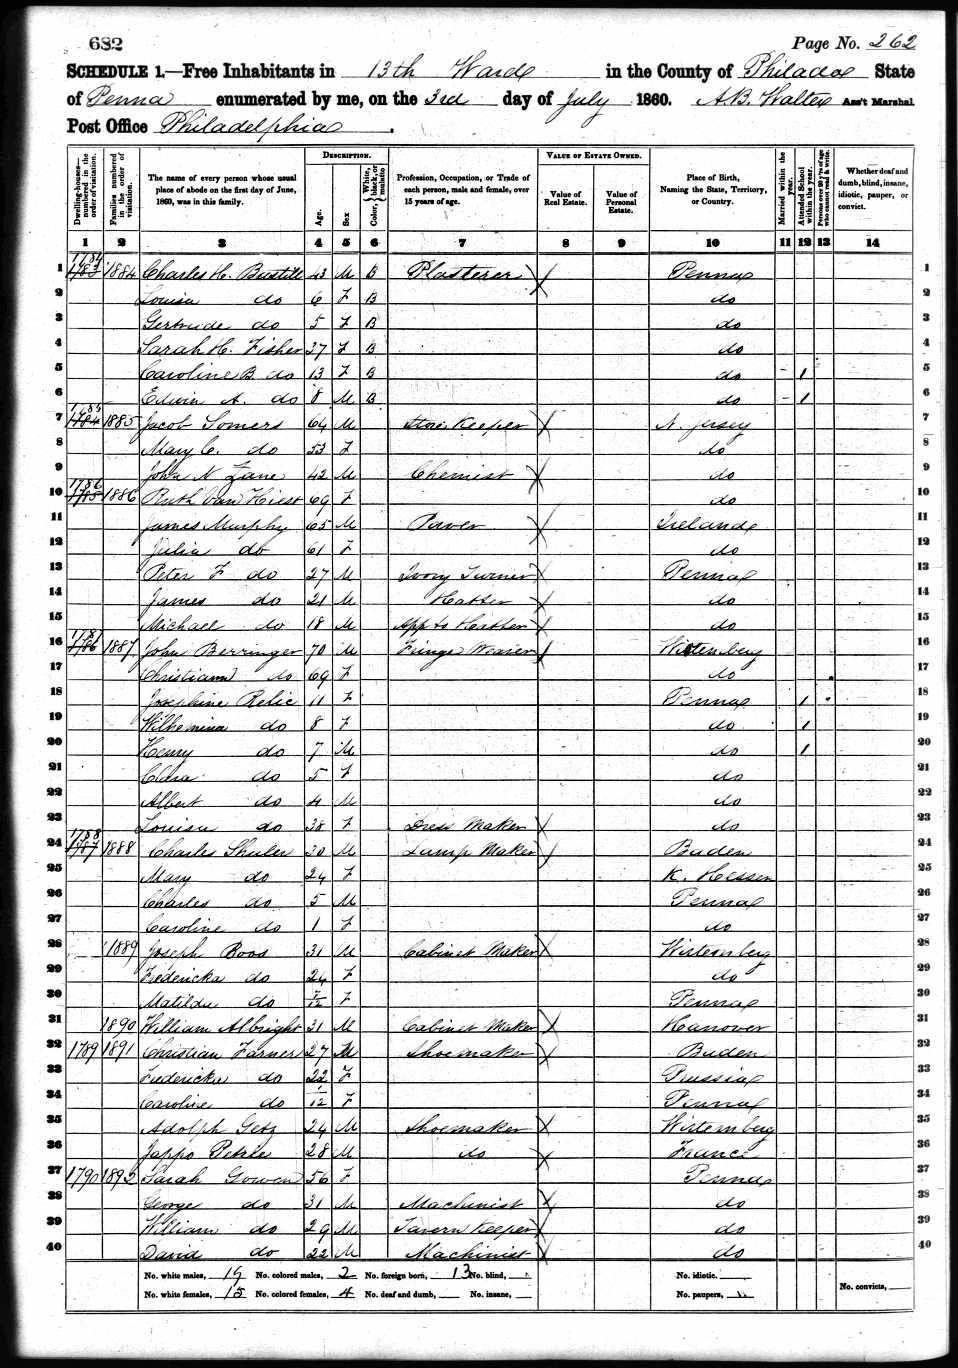 682
Page No. 262
SCHEDULE 1.—Free Inhabitants in 13th Ward in the County of Philada State
of Penna enumerated by me, on the 3rd day of July 1860. A.B. Walter Ass't Marshal
Post Office Philadelphia.
DESCRIPTION. VALUE OF ESTATE OWNED.
Dwelling-houses—numbered in the order of visitation. Families numbered in the order of visitation. The name of every person whose usual place of abode on the first day of June, 1860, was in this family. Age. Sex Color, {White, black, or mulatto Profession, Occupation, or Trade of each person, male and female, over 15 years of age. Value of Real Estate. Value of Personal Estate. Place of Birth, Naming the State, Territory, or Country. Married within the year. Attended School within the year. Persons over 20 y'rs of age who cannot read & write. Whether deaf and dumb, blind, insane, idiotic, pauper, or convict.
1 2 3 4 5 6 7 8 9 10 11 12 13 14
1 1784 1783 1884 Charles H. Bustill 43 M B Plasterer Penna 1
2 Louisa do 6 F B do 2
3 Gertrude do 5 F B do 3
4 Sarah H. Fisher 37 F B do 4
5 Caroline B. do 13 F B do 1 5
6 Edwin A. do 8 M B do 1 6
7 1785 1784 1885 Jacob Somers 64 M Store Keeper N. Jersey 7
8 Mary C. do 53 F do 8
9 John N Zane 42 M Chemist do 9
10 1786 1785 1886 Ruth Van Hiest 69 F do 10
11 James Murphy 65 M Paver Ireland 11
12 Julia do 61 F do 12
13 Peter F do 27 M Ivory Turner Penna 13
14 James do 21 M Hatter do 14
15 Michael do 18 M App to Hatter do 15
16 1787 1786 1887 John Berringer 70 M Fringe Weaver Wirtemberg 16
17 Christiann do 69 F do 17
18 Josephine Relic 11 F Penna 1 18
19 Wilhemina do 8 F do 1 19
20 Henry do 7 M do 1 20
21 Clara do 5 F do 21
22 Albert do 4 M do 22
23 Louisa do 38 F Dress Maker do 23
24 1788 1787 1888 Charles Shuler 30 M Lamp Maker Baden 24
25 Mary do 24 F K. Hessen 25
26 Charles do 5 M Penna 26
27 Caroline do 1 F do 27
28 1889 Joseph Roos 31 M Cabinet Maker Wirtemberg 28
29 Fredericka do 24 F do 29
30 Matilda do 7/12 F Penna 30
31 1890 William Albright 31 M Cabinet Maker Hanover 31
32 1789 1891 Christian Farner 27 M Shoemaker Baden 32
33 Fredericka do 22 F Prussia 33
34 Caroline do 1/12 F Penna 34
35 Adolph Getz 24 M Shoemaker Wirtemberg 35
36 Jappo Petrle 28 M do France 36
37 1790 1892 Sarah Gowen 56 F Penna 37
38 George do 31 M Machinist do 38
39 William do 29 M Tavern Keeper do 39
40 David do 22 M Machinist do 40
No. white males, 19 No. colored males, 2 No. foreign born, 13 No. blind, No. idiotic.
No. white females, 15 No. colored females, 4 No. deaf and dumb, No. insane, No. paupers, No. convicts,